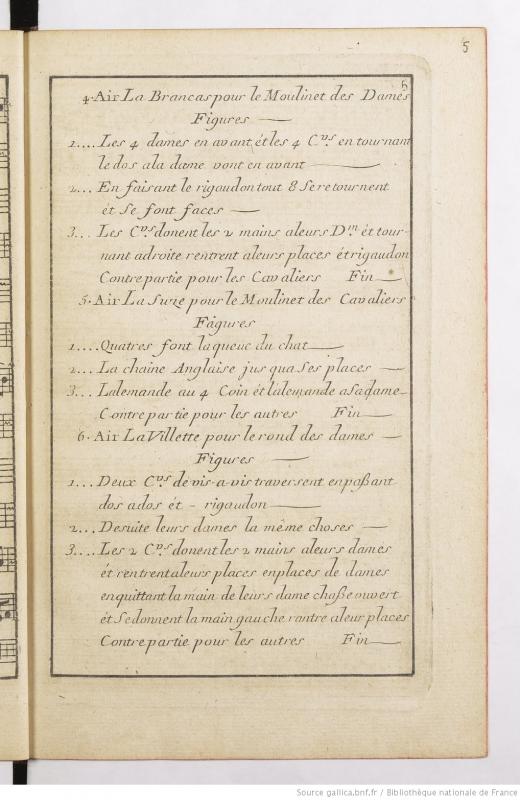 5
5
4. Air La Brancas pour le Moulinet des Dames
Figures
1.... Les 4 dames en avant ét les 4 C.vrs en tournant
le dos ala dame vont en avant
2... En faisant le rigaudon tout 8 se retournent
ét se font faces
3... Les C.vrs donent les 2 mains a leurs D.m ét tour-
nant adroite rentrent aleurs places ét rigaudon
Contre partie pour les Cavaliers Fin
5. Air La Suze pour le Moulinet des Cavaliers
Figures
1.... Quatres font la queuë du chat
2... La chaine Anglaise jus qua Ses places
3... Lalemande au 4 Coin ét lalemande asadame
Contre partie pour les autres Fin
6. Air La Villette pour le rond des dames
Figures
1... Deux C.vrs de vis-a-vis traversent en paßant
dos ados ét - rigaudon
2... Desuite leurs dames la même choses
3... Les 2 C.vrs donent les 2 mains aleurs dames
ét rentrent aleurs places enplaces de dames
enquittant la main de leurs dame chaße ouvert
ét Sedonnent la main gauche rantre aleur places
Contre partie pour les autres Fin
Source gallica.bnf.fr / Bibliothèque nationale de France